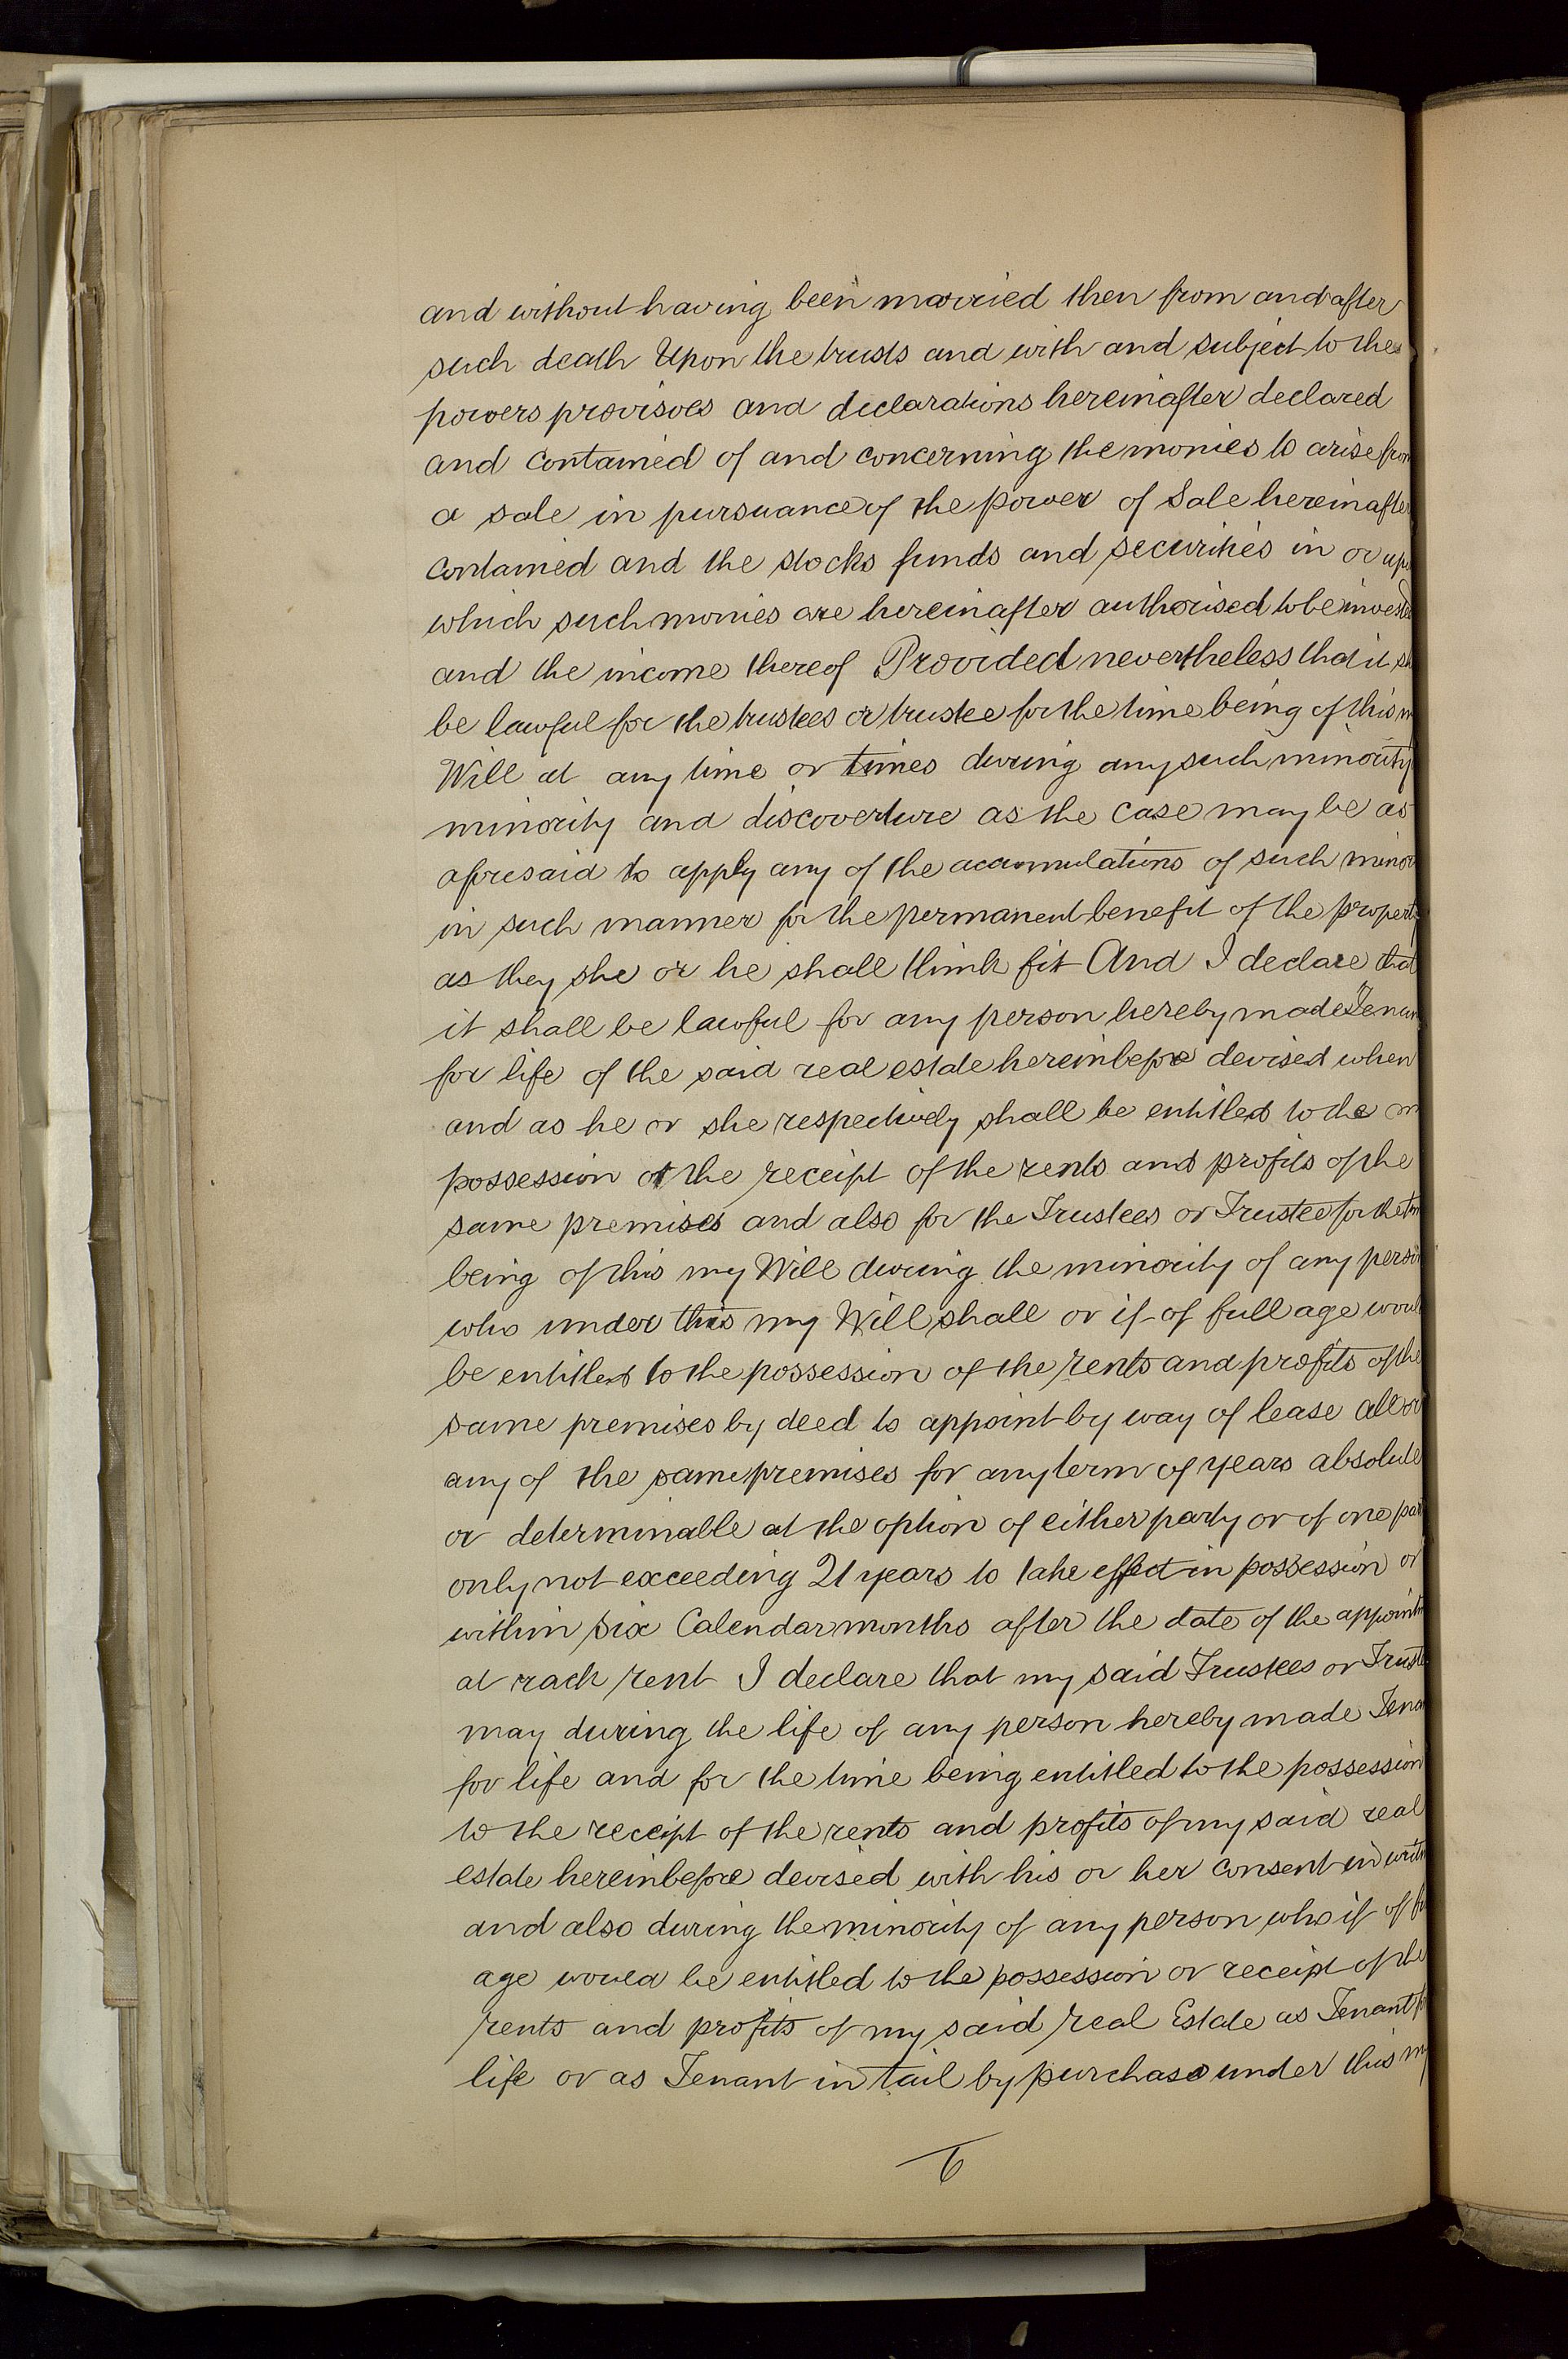 and without having been married then from and after
such death Upon the trusts and with and subject to the
powers provisoes and declarations hereinafter declared
and contained of and concerning the monies to arise from
a sale in pursuance of the power of Sale hereinafter
contained and the stocks funds and securities in or upo
which such monies are hereinafter authorised to be investe
and the income thereof Provided nevertheless that it sh
be lawful for the trustees or trustee for the time being of this m
Will at any time or times during any such minority
minority and discoverture as the case may be as
aforesaid to apply any of the accumulations of such minor
in such manner for the permanent benefit of the property
as they she or he shall think fit And I declare that
it shall be lawful for any person hereby made Tenan
for life of the said real estate hereinbefore devised when
and as he or she respectively shall be entitled to the
possession of the receipt of the rents and profits of the
same premises and also for the Trustees or Trustee for the tim
being of this my Will during the minority of any perso
who under this my Will shall or if of full age woul
be entitled to the possession of the rents and profits of the
same premises by deed to appoint by way of lease all or
any of the same premises for any term of years absolute
or determinable at the option of either party or of one par
only not exceeding 21 years to take effect in possession or
within six Calendar months after the date of the appointm
at rack rent I declare that my said Trustees or Truste
may during the life of any person hereby made Tena
for life and for the time being entitled to the possession
to the receipt of the rents and profits of my said real
estate hereinbefore devised with his or her consent in writin
and also during the minority of any person who if of fu
age would be entitled to the possession or receipt of the
rents and profits of my said real Estate as Tenant fo
life or as Tenant in tail by purchase under this my
6